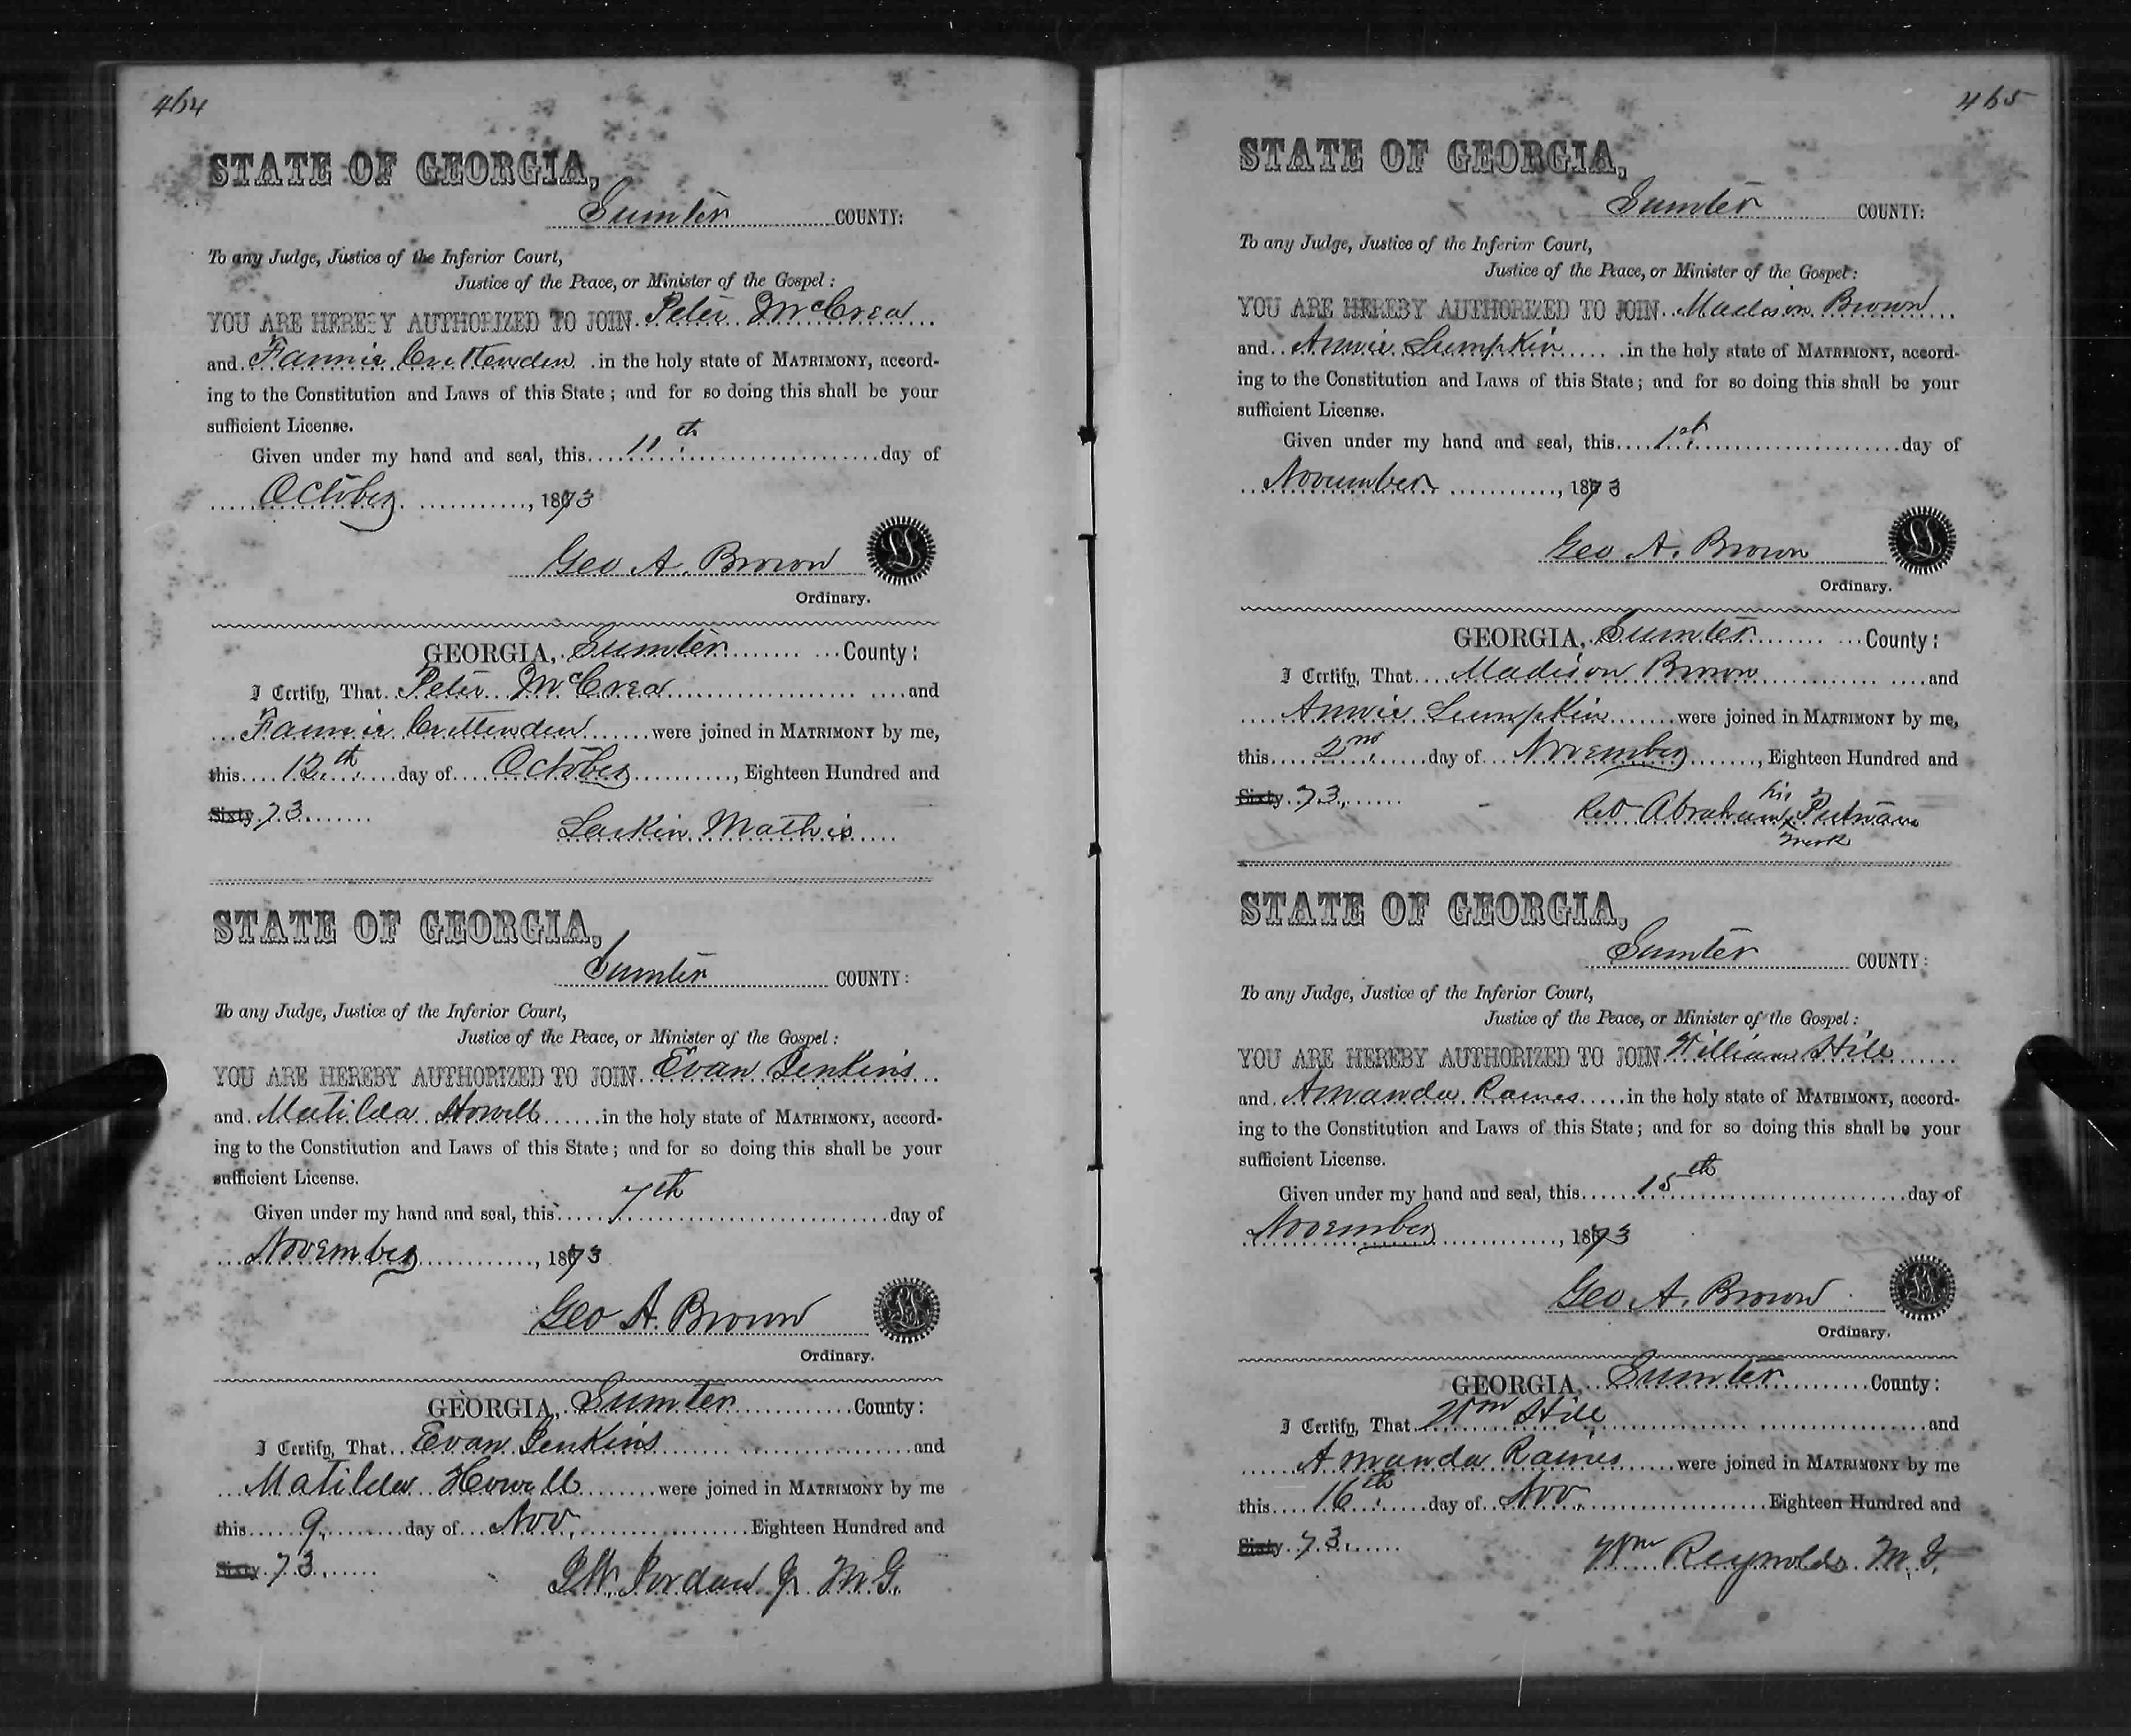 464
STATE OF GEORGIA,
Sumter COUNTY:
To any Judge, Justice of the Inferior Court,
Justice of the Peace, or Minister of the Gospel:
YOU ARE HEREBY AUTHORIZED TO JOIN Peter McCrea
and Fannie Crittenden in the holy state of MATRIMONY, accord-
ing to the Constitution and Laws of this State; and for so doing this shall be your
sufficient License.
Given under my hand and seal, this 11th day of
October, 1873
Geo A. Brown
Ordinary.
GEORGIA, Sumter County:
I Certify, That Peter McCrea and
Fannie Crittenden were joined in MATRIMONY by me,
this 12th day of October, Eighteen Hundred and
Sixty 73
Larkin Mathis
STATE OF GEORGIA,
Sumter COUNTY:
To any Judge, Justice of the Inferior Court,
Justice of the Peace, or Minister of the Gospel:
YOU ARE HEREBY AUTHORIZED TO JOIN Evan Jenkins
and Matilda Howell in the holy state of MATRIMONY, accord-
ing to the Constitution and Laws of this State; and for so doing this shall be your
sufficient License.
Given under my hand and seal, this 7th day of
November, 1873
Geo A. Brown
Ordinary.
GEORGIA, Sumter County:
I Certify, That Evan Jenkins and
Matilda Howell were joined in MATRIMONY by me
this 9 day of Nov, Eighteen Hundred and
Sixty 73
Jordan Jr. M.G.
465
STATE OF GEORGIA,
Sumter COUNTY:
To any Judge, Justice of the Inferior Court,
Justice of the Peace, or Minister of the Gospel:
YOU ARE HEREBY AUTHORIZED TO JOIN Madison Brown
and Annie Lumpkin in the holy state of MATRIMONY, accord-
ing to the Constitution and Laws of this State; and for so doing this shall be your
sufficient License.
Given under my hand and seal, this 1st day of
November, 1873
Geo A. Brown
Ordinary.
GEORGIA, Sumter County:
I Certify, That Madison Brown and
Annie Lumpkin were joined in MATRIMONY by me,
this 2nd day of November, Eighteen Hundred and
Sixty 73
his
Rev Abraham x Putnam
mark
STATE OF GEORGIA,
Sumter COUNTY:
To any Judge, Justice of the Inferior Court,
Justice of the Peace, or Minister of the Gospel:
YOU ARE HEREBY AUTHORIZED TO JOIN William Hill
and Amanda Raines in the holy state of MATRIMONY, accord-
ing to the Constitution and Laws of this State; and for so doing this shall be your
sufficient License.
Given under my hand and seal, this 15th day of
November, 1873
Geo. A. Brown
Ordinary.
GEORGIA, Sumter County:
I Certify, That Wm Hill and
Amanda Raines were joined in MATRIMONY by me
this 16th day of Nov. Eighteen Hundred and
Sixty 73
Wm Reynolds M.G.